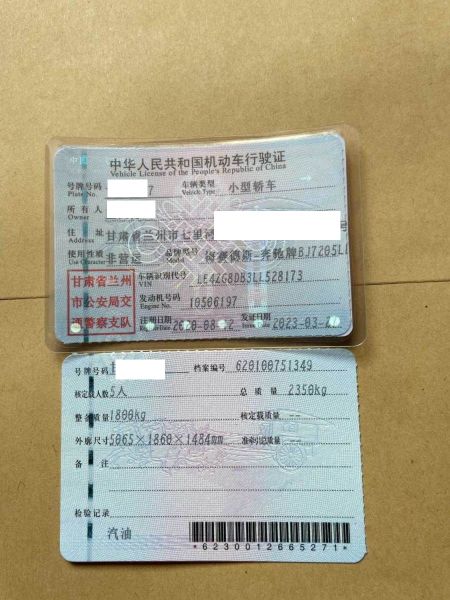 中华人民共和国机动车行驶证
Vehicle License of the People's Republic of China
号牌号码 Plate No. 7 车辆类型 Vehicle Type 小型轿车
所有人 Owner
住址 Address 甘肃省兰州市七里河 号
使用性质 Use Character 非营运 品牌型号 Model 梅赛德斯-奔驰牌BJ7205L
甘肃省兰州市公安局交通警察支队
车辆识别代号 VIN LE4ZG8DB3LL528173
发动机号码 Engine No. 10506197
注册日期 2020-08- 2 发证日期 Issue Date 2023-03-2
号牌号码 档案编号 620100751349
核定载人数 5人 总质量 2350kg
整备质量 1800kg 核定载质量 --
外廓尺寸 5065×1860×1484mm 准牵引总质量 --
备注
检验记录
汽油
*6230012665271*